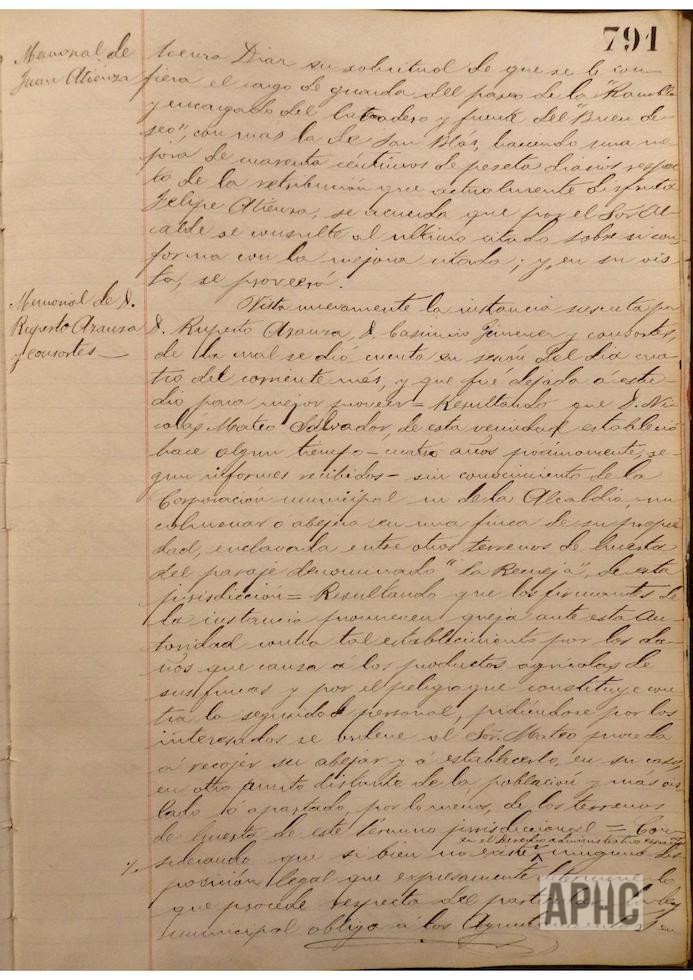 791
Memorial de
Juan Atienza
Diaz su solicitud de que se le con-
fiera el cargo de guarda del paseo de la Rambla
y encargado del lavadero y fuente del "Buen de-
seo", con mas la de San Blás, haciendo una me-
jora de cuarenta céntimos de peseta diarios respec-
to de la retribución que actualmente disfruta
Felipe Atienza, se acuerda que por el Sor. Al-
calde se consulte al ultimo citado sobre si con-
forma con la mejora citada; y, en su vis-
ta, se proveerá.
Memorial de D.
Ruperto Arauza
y consortes
Vista nuevamente la instancia suscrita por
D. Ruperto Arauza, D. Casimiro Jimenez y consortes
de la cual se dió cuenta en sesion del dia cua-
tro del corriente més, y que fué dejada á estu-
dio para mejor proveer = Resultando que D. Ni-
colás Mateo Salvador, de esta vecindad estableció
hace algun tiempo - cuatro años proximamente, se-
gun informes recibidos - sin conocimiento de la
Corporación municipal ni de la Alcaldia, un
colmenar o abejera en una finca de su propie-
dad, enclavada entre otros terrenos de huerta
del paraje denominado "La Recueja", de esta
jurisdicción = Resultando que los firmantes de
la instancia promueven queja ante esta Au-
toridad contra tal establecimiento por los da-
ños que causa a los productos agrícolas de
sus fincas y por el peligro que constituye con-
tra la seguridad personal, pidiéndose por los
interesados se ordene al Sor. Mateo proceda
á recojer su abejar y á establecerlo, en su caso,
en otro punto distante de la población y más ais-
lado ló apartado, por lo menos, de los terrenos
de huerta de este término jurisdiccional = Con-
en el Derecho administrativo español
siderando que si bien no existe ninguna dis-
posición legal que expresamente determine lo
que procede respecto del particular, la ley
municipal obliga á los Ayuntamientos en
APHC